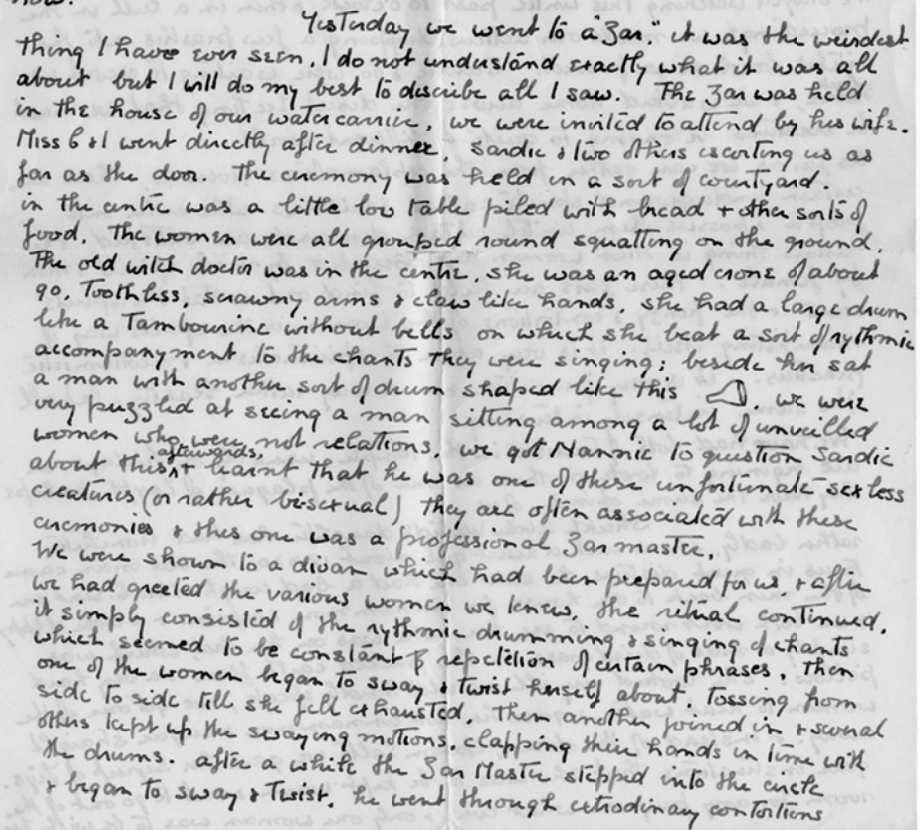 Yesterday we went to a "Zar". it was the weirdest
thing I have ever seen. I do not understand exactly what it was all
about but I will do my best to describe all I saw. The Zar was held
in the house of our watercarrier, we were invited to attend by his wife.
Miss C & I went directly after dinner, Sardic & two others escorting us as
far as the door. The ceremony was held in a sort of courtyard.
in the centre was a little low table piled with bread + other sorts of
food. The women were all grouped round squatting on the ground.
The old witch doctor was in the centre, she was an aged crone of about
90. Toothless, scrawny arms & claw like hands, she had a large drum
like a Tambourine without bells on which she beat a sort of rythmic
accompanyment to the chants they were singing; beside her sat
a man with another sort of drum shaped like this . we were
very puzzled at seeing a man sitting among a lot of unveiled
women who were not relations, we got Mannic to question Sardic
about this & afterwards learnt that he was one of these unfortunate sexless
creatures (or rather bi-sexual) they are often associated with these
ceremonies & this one was a professional Zar master.
We were shown to a divan which had been prepared for us + after
we had greeted the various women we knew, the ritual continued.
it simply consisted of the rythmic drumming & singing of chants
which seemed to be constant repetition of certain phrases, then
one of the women began to sway & twist herself about, tossing from
side to side till she fell exhausted. Then another joined in + several
others kept up the swaying motions, clapping their hands in time with
the drums. after a while the Zar Master stepped into the circle
+ began to sway & twist, he went through extrodinary contortions